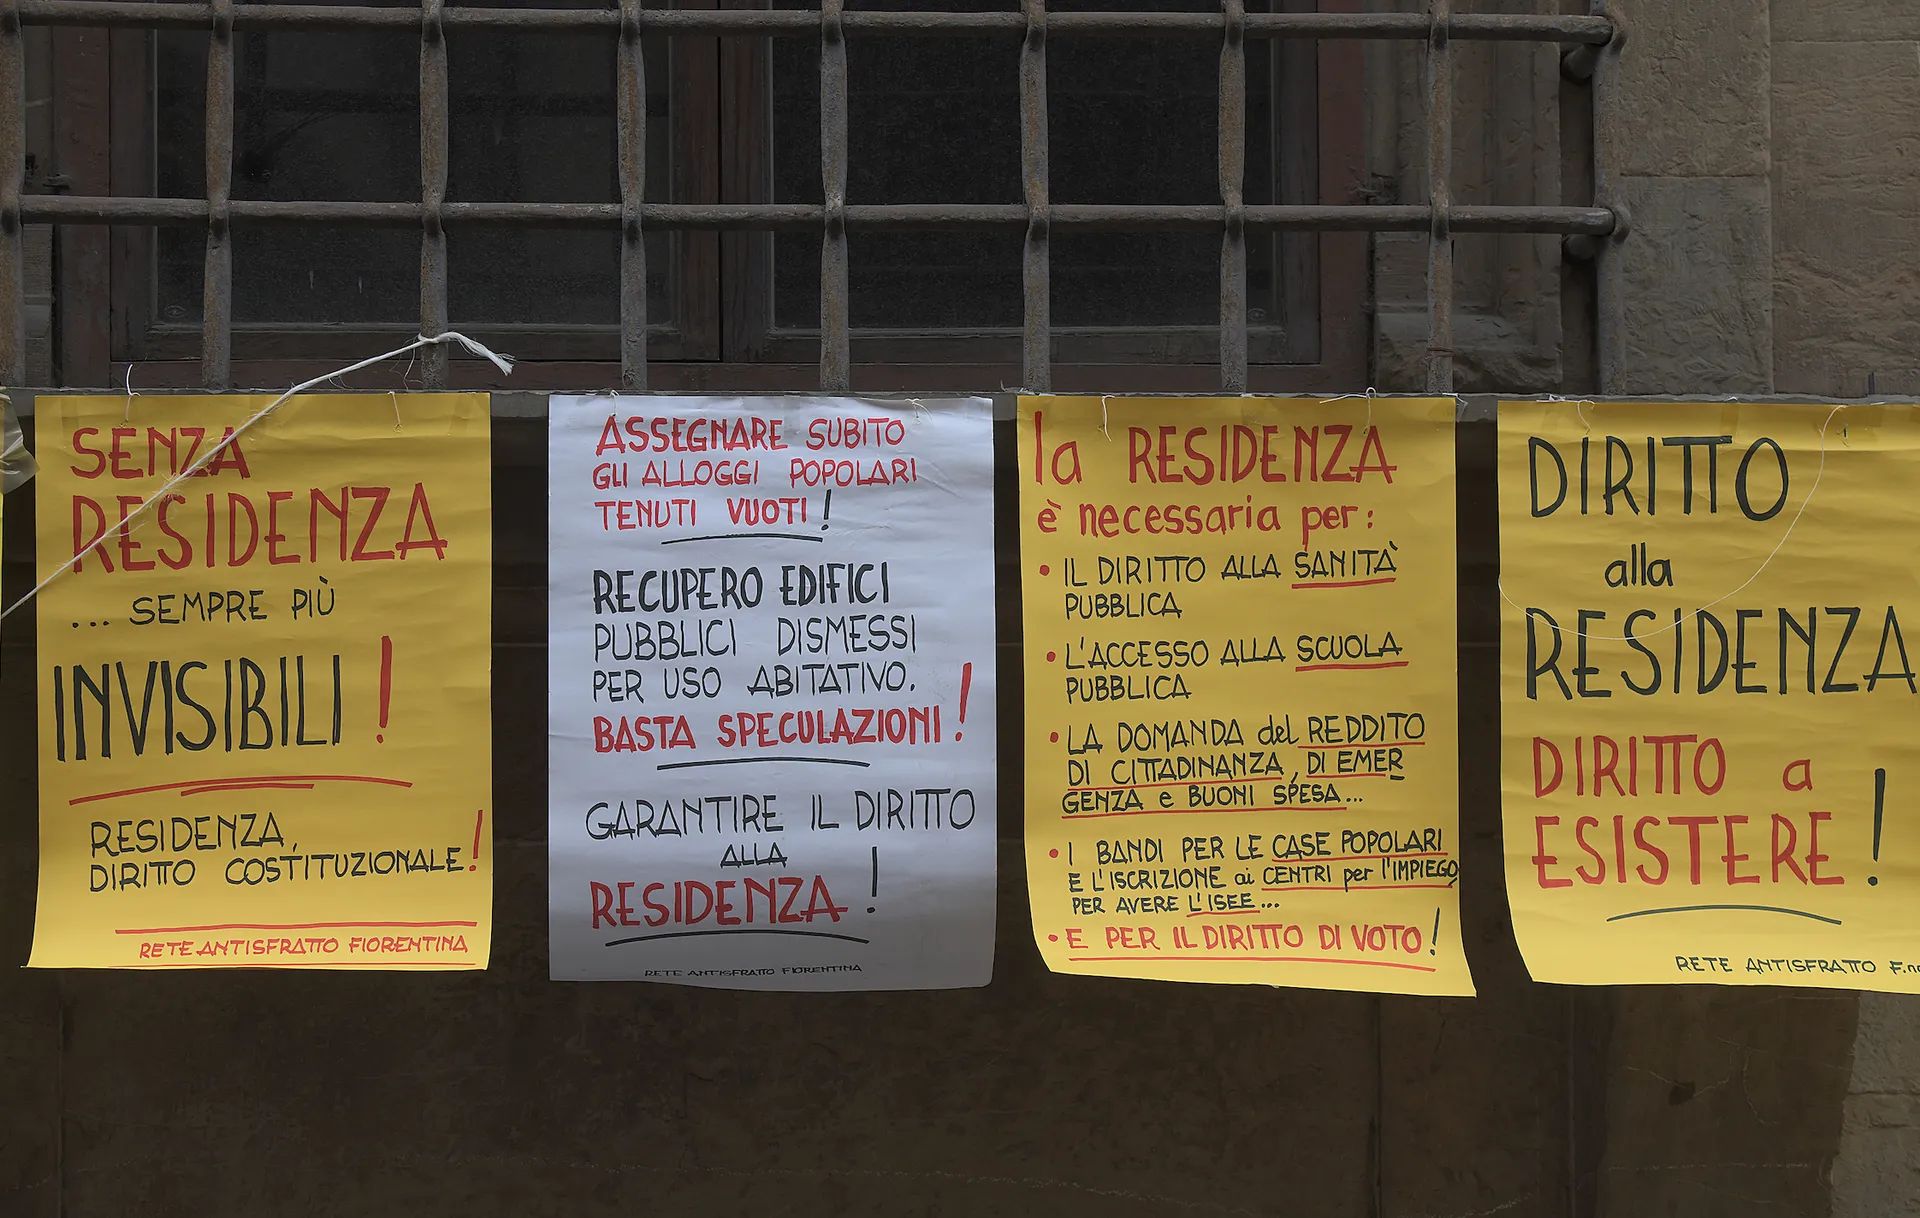 SENZA
RESIDENZA
... SEMPRE PIÙ
INVISIBILI!
RESIDENZA,
DIRITTO COSTITUZIONALE!
RETE ANTISFRATTO FIORENTINA
ASSEGNARE SUBITO
GLI ALLOGGI POPOLARI
TENUTI VUOTI!
RECUPERO EDIFICI
PUBBLICI DISMESSI
PER USO ABITATIVO.
BASTA SPECULAZIONI!
GARANTIRE IL DIRITTO
ALLA
RESIDENZA!
RETE ANTISFRATTO FIORENTINA
la RESIDENZA
è necessaria per:
• IL DIRITTO ALLA SANITÀ
PUBBLICA
• L'ACCESSO ALLA SCUOLA
PUBBLICA
• LA DOMANDA del REDDITO
DI CITTADINANZA, DI EMER
GENZA e BUONI SPESA...
• I BANDI PER LE CASE POPOLARI
E L'ISCRIZIONE ai CENTRI per l'IMPIEGO
PER AVERE L'ISEE...
• E PER IL DIRITTO DI VOTO!
DIRITTO
alla
RESIDENZA
DIRITTO a
ESISTERE!
RETE ANTISFRATTO F.na